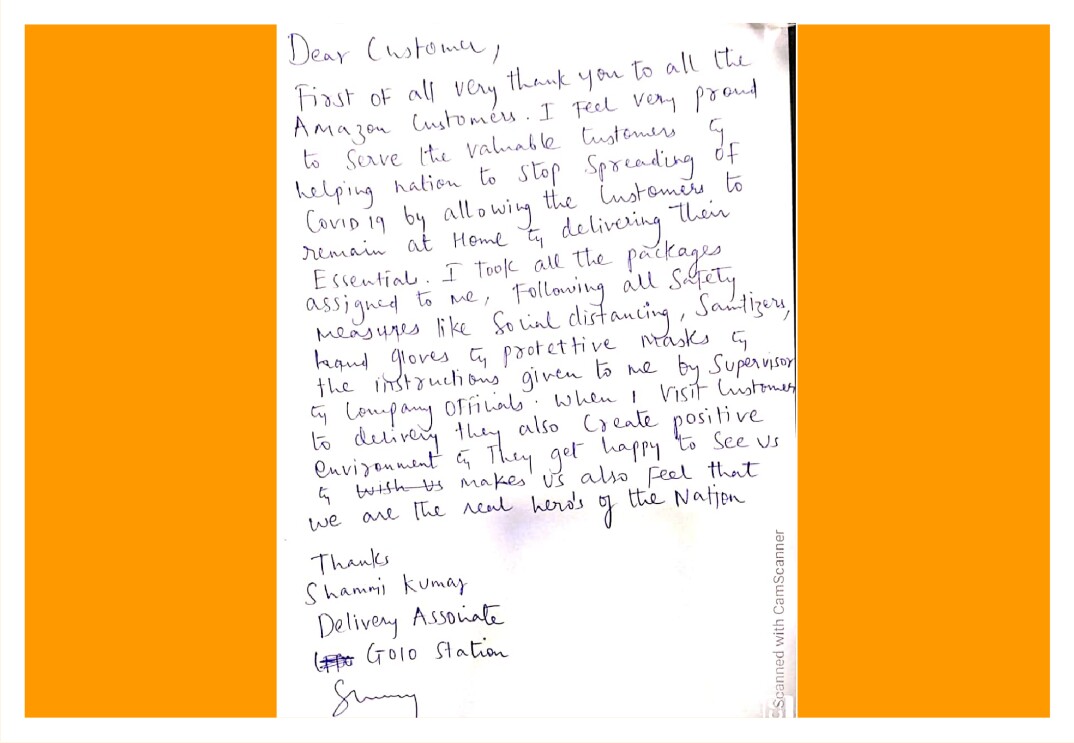 Dear Customer,
First of all very thank you to all the
Amazon Customers. I Feel very proud
to Serve the valuable Customers &
helping nation to stop Spreading of
Covid 19 by allowing the Customers to
remain at Home & delivering their
Essential. I Took all the packages
assigned to me, Following all Safety
measures like Social distancing, Santizers,
hand gloves & protettive masks &
the instructions given to me by Supervisor
& Company Officials. When I Visit Customer
to delivery they also Create positive
environment & They get happy to See us
& wish us makes us also Feel that
we are the real hero's of the Nation
Thanks
Shammi Kumar
Delivery Associate
Station
Scanned with CamScanner